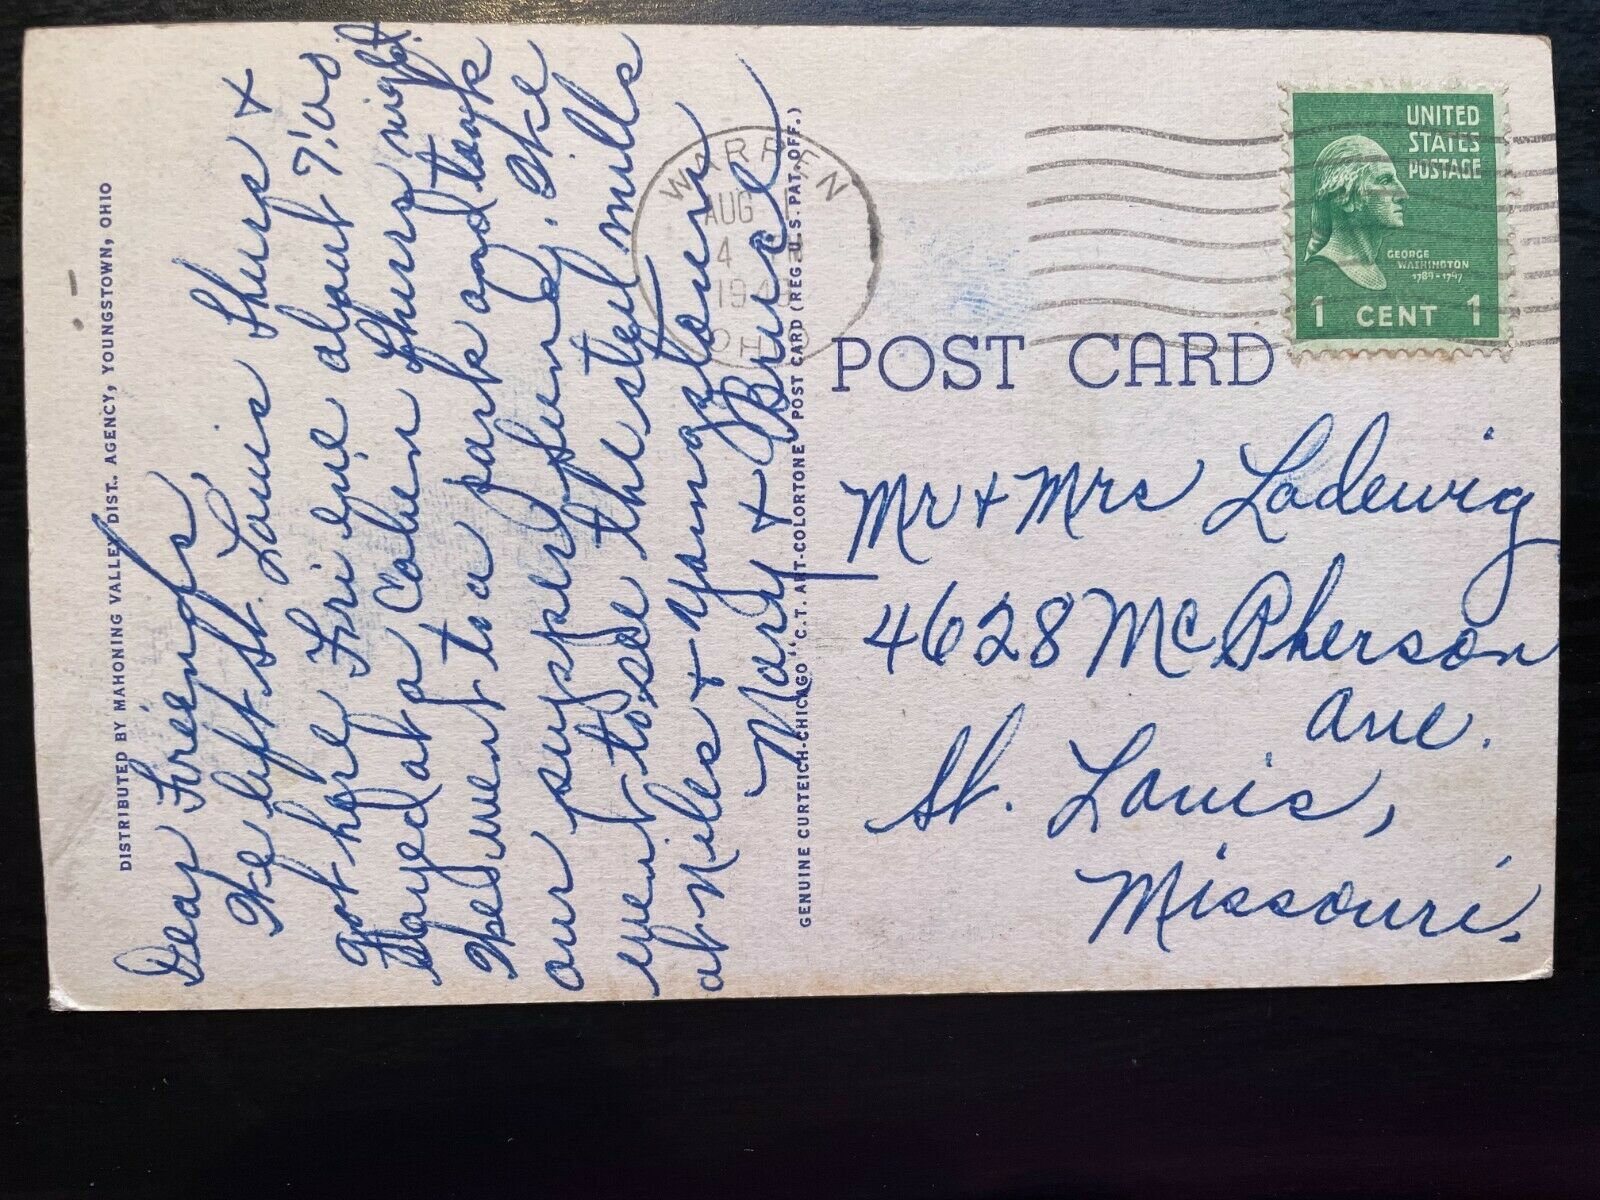 DISTRIBUTED BY MAHONING VALLEY DIST. AGENCY, YOUNGSTOWN, OHIO
Dear Friends,
We left St. Louis Thurs +
got here Fri eve about 7:00
Stayed at a Cabin Thurs night.
We went to a park and took
our supper Sunday. We
went to see the steel mills
at Niles + Youngstown
Mary + Bruce
GENUINE CURTEICH-CHICAGO "C.T. ART-COLORTONE POST CARD (REG U.S. PAT. OFF.)
WARREN
AUG
4
194
OHIO
UNITED
STATES
POSTAGE
GEORGE
WASHINGTON
1789-1797
1 CENT 1
POST CARD
Mr + Mrs Ladewig
4628 McPherson
Ave.
St. Louis,
Missouri.